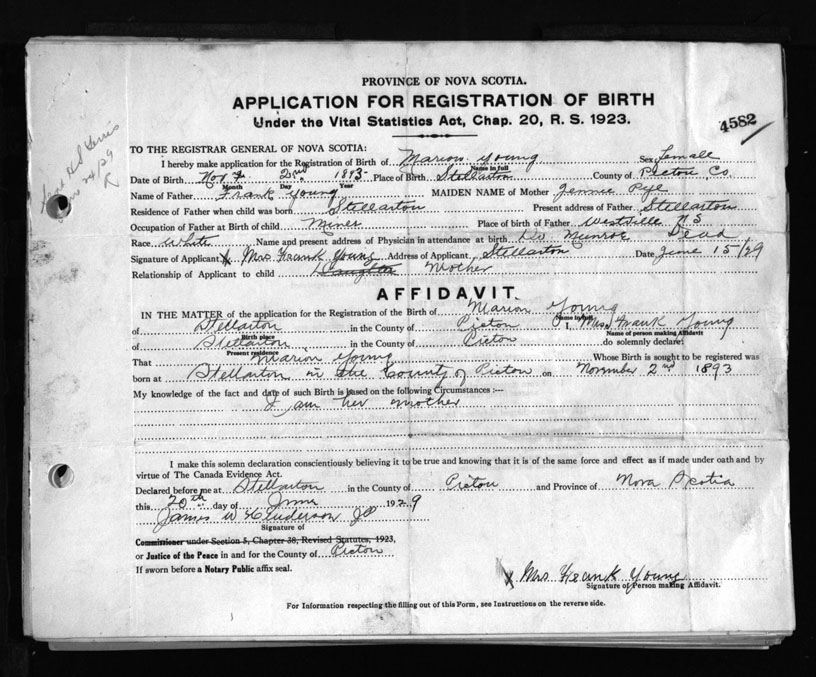 PROVINCE OF NOVA SCOTIA.
APPLICATION FOR REGISTRATION OF BIRTH
Under the Vital Statistics Act, Chap. 20, R. S. 1923.
4582
TO THE REGISTRAR GENERAL OF NOVA SCOTIA:
I hereby make application for the Registration of Birth of Marion Young Sex Female
Name in full
Date of Birth Nov 2nd 1893 Place of Birth Stellarton County of Pictou Co.
Month Day Year
Name of Father Frank Young MAIDEN NAME of Mother Jennie Pye
Residence of Father when child was born Stellarton Present address of Father Stellarton
Occupation of Father at Birth of child Miner Place of birth of Father Westville N S
Race White Name and present address of Physician in attendance at birth Dr Munroe Dead
Signature of Applicant X Mrs Frank Young Address of Applicant Stellarton Date June 15/29
Relationship of Applicant to child Daughter Mother
AFFIDAVIT.
IN THE MATTER of the application for the Registration of the Birth of Marion Young
Name in full
of Stellarton in the County of Pictou I, Mrs Frank Young
Birth place Name of person making Affidavit
of Stellarton in the County of Pictou do solemnly declare:
Present residence
That Marion Young Whose Birth is sought to be registered was
born at Stellarton in the County of Pictou on November 2nd 1893
My knowledge of the fact and date of such Birth is based on the following Circumstances :—
I am her mother
I make this solemn declaration conscientiously believing it to be true and knowing that it is of the same force and effect as if made under oath and by
virtue of The Canada Evidence Act.
Declared before me at Stellarton in the County of Pictou and Province of Nova Scotia
this 20th day of June 1929
James W Henderson J P
Signature of
Commissioner under Section 5, Chapter 38, Revised Statutes, 1923,
or Justice of the Peace in and for the County of Pictou
If sworn before a Notary Public affix seal.
X Mrs Frank Young
Signature of Person making Affidavit.
For Information respecting the filling out of this Form, see Instructions on the reverse side.